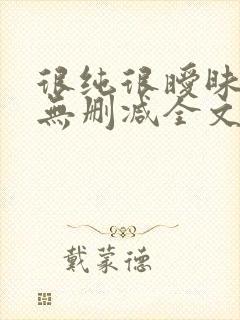 很纯很暧昧
無删减全文
戴蒙德